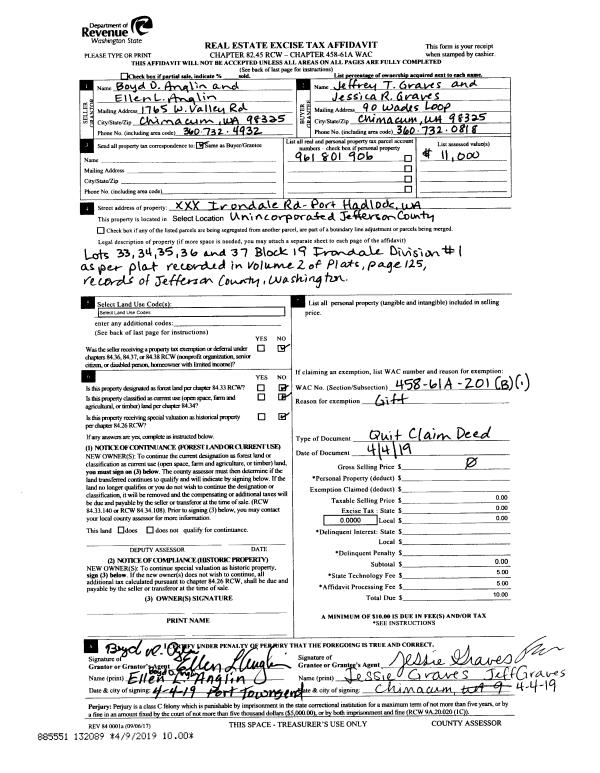 Department of
Revenue
Washington State
PLEASE TYPE OR PRINT
REAL ESTATE EXCISE TAX AFFIDAVIT
CHAPTER 82.45 RCW – CHAPTER 458-61A WAC
This form is your receipt
when stamped by cashier.
THIS AFFIDAVIT WILL NOT BE ACCEPTED UNLESS ALL AREAS ON ALL PAGES ARE FULLY COMPLETED
(See back of last page for instructions)
Check box if partial sale, indicate % sold.
List percentage of ownership acquired next to each name.
1
SELLER
GRANTOR
Name Boyd D. Anglin and
Ellen L. Anglin
Mailing Address 1765 W. Valley Rd
City/State/Zip Chimacum, WA 98325
Phone No. (including area code) 360-732-4932
2
BUYER
GRANTEE
Name Jeffrey T. Graves and
Jessica R. Graves
Mailing Address 90 Wades Loop
City/State/Zip Chimacum, WA 98325
Phone No. (including area code) 360-732-0818
3
Send all property tax correspondence to: Same as Buyer/Grantee
Name
Mailing Address
City/State/Zip
Phone No. (including area code)
List all real and personal property tax parcel account
numbers – check box if personal property
961 801 906
List assessed value(s)
$ 11,000
4
Street address of property: XXX Irondale Rd - Port Hadlock, WA
This property is located in Select Location Unincorporated Jefferson County
Check box if any of the listed parcels are being segregated from another parcel, are part of a boundary line adjustment or parcels being merged.
Legal description of property (if more space is needed, you may attach a separate sheet to each page of the affidavit)
Lots 33, 34, 35, 36 and 37 Block 19 Irondale Division #1
as per plat recorded in Volume 2 of Plats, page 125,
records of Jefferson County, Washington.
5
Select Land Use Code(s):
Select Land Use Codes
enter any additional codes:
(See back of last page for instructions)
YES NO
Was the seller receiving a property tax exemption or deferral under
chapters 84.36, 84.37, or 84.38 RCW (nonprofit organization, senior
citizen, or disabled person, homeowner with limited income)?
6
YES NO
Is this property designated as forest land per chapter 84.33 RCW?
Is this property classified as current use (open space, farm and
agricultural, or timber) land per chapter 84.34?
Is this property receiving special valuation as historical property
per chapter 84.26 RCW?
If any answers are yes, complete as instructed below.
(1) NOTICE OF CONTINUANCE (FOREST LAND OR CURRENT USE)
NEW OWNER(S): To continue the current designation as forest land or
classification as current use (open space, farm and agriculture, or timber) land,
you must sign on (3) below. The county assessor must then determine if the
land transferred continues to qualify and will indicate by signing below. If the
land no longer qualifies or you do not wish to continue the designation or
classification, it will be removed and the compensating or additional taxes will
be due and payable by the seller or transferor at the time of sale. (RCW
84.33.140 or RCW 84.34.108). Prior to signing (3) below, you may contact
your local county assessor for more information.
This land does does not qualify for continuance.
DEPUTY ASSESSOR DATE
(2) NOTICE OF COMPLIANCE (HISTORIC PROPERTY)
NEW OWNER(S): To continue special valuation as historic property,
sign (3) below. If the new owner(s) does not wish to continue, all
additional tax calculated pursuant to chapter 84.26 RCW, shall be due and
payable by the seller or transferor at the time of sale.
(3) OWNER(S) SIGNATURE
PRINT NAME
7
List all personal property (tangible and intangible) included in selling
price.
If claiming an exemption, list WAC number and reason for exemption:
WAC No. (Section/Subsection) 458-61A-201 (B)(1)
Reason for exemption
Gift
Type of Document Quit Claim Deed
Date of Document 4/4/19
Gross Selling Price $ Ø
*Personal Property (deduct) $
Exemption Claimed (deduct) $
Taxable Selling Price $ 0.00
Excise Tax : State $ 0.00
0.0000 Local $ 0.00
*Delinquent Interest: State $
Local $
*Delinquent Penalty $
Subtotal $ 0.00
*State Technology Fee $ 5.00
*Affidavit Processing Fee $ 5.00
Total Due $ 10.00
A MINIMUM OF $10.00 IS DUE IN FEE(S) AND/OR TAX
*SEE INSTRUCTIONS
8
I CERTIFY UNDER PENALTY OF PERJURY THAT THE FOREGOING IS TRUE AND CORRECT.
Signature of
Grantor or Grantor's Agent Ellen L Anglin
Boyd D. Anglin
Name (print) Ellen L. Anglin
Date & city of signing: 4-4-19 Port Townsend
Signature of
Grantee or Grantee's Agent Jessie Graves
Name (print) Jessie Graves Jeff Graves
Date & city of signing: Chimacum, 4-4-19
Perjury: Perjury is a class C felony which is punishable by imprisonment in the state correctional institution for a maximum term of not more than five years, or by
a fine in an amount fixed by the court of not more than five thousand dollars ($5,000.00), or by both imprisonment and fine (RCW 9A.20.020 (1C)).
REV 84 0001a (09/06/17)
THIS SPACE - TREASURER'S USE ONLY
COUNTY ASSESSOR
885551 132089 *4/9/2019 10.00*